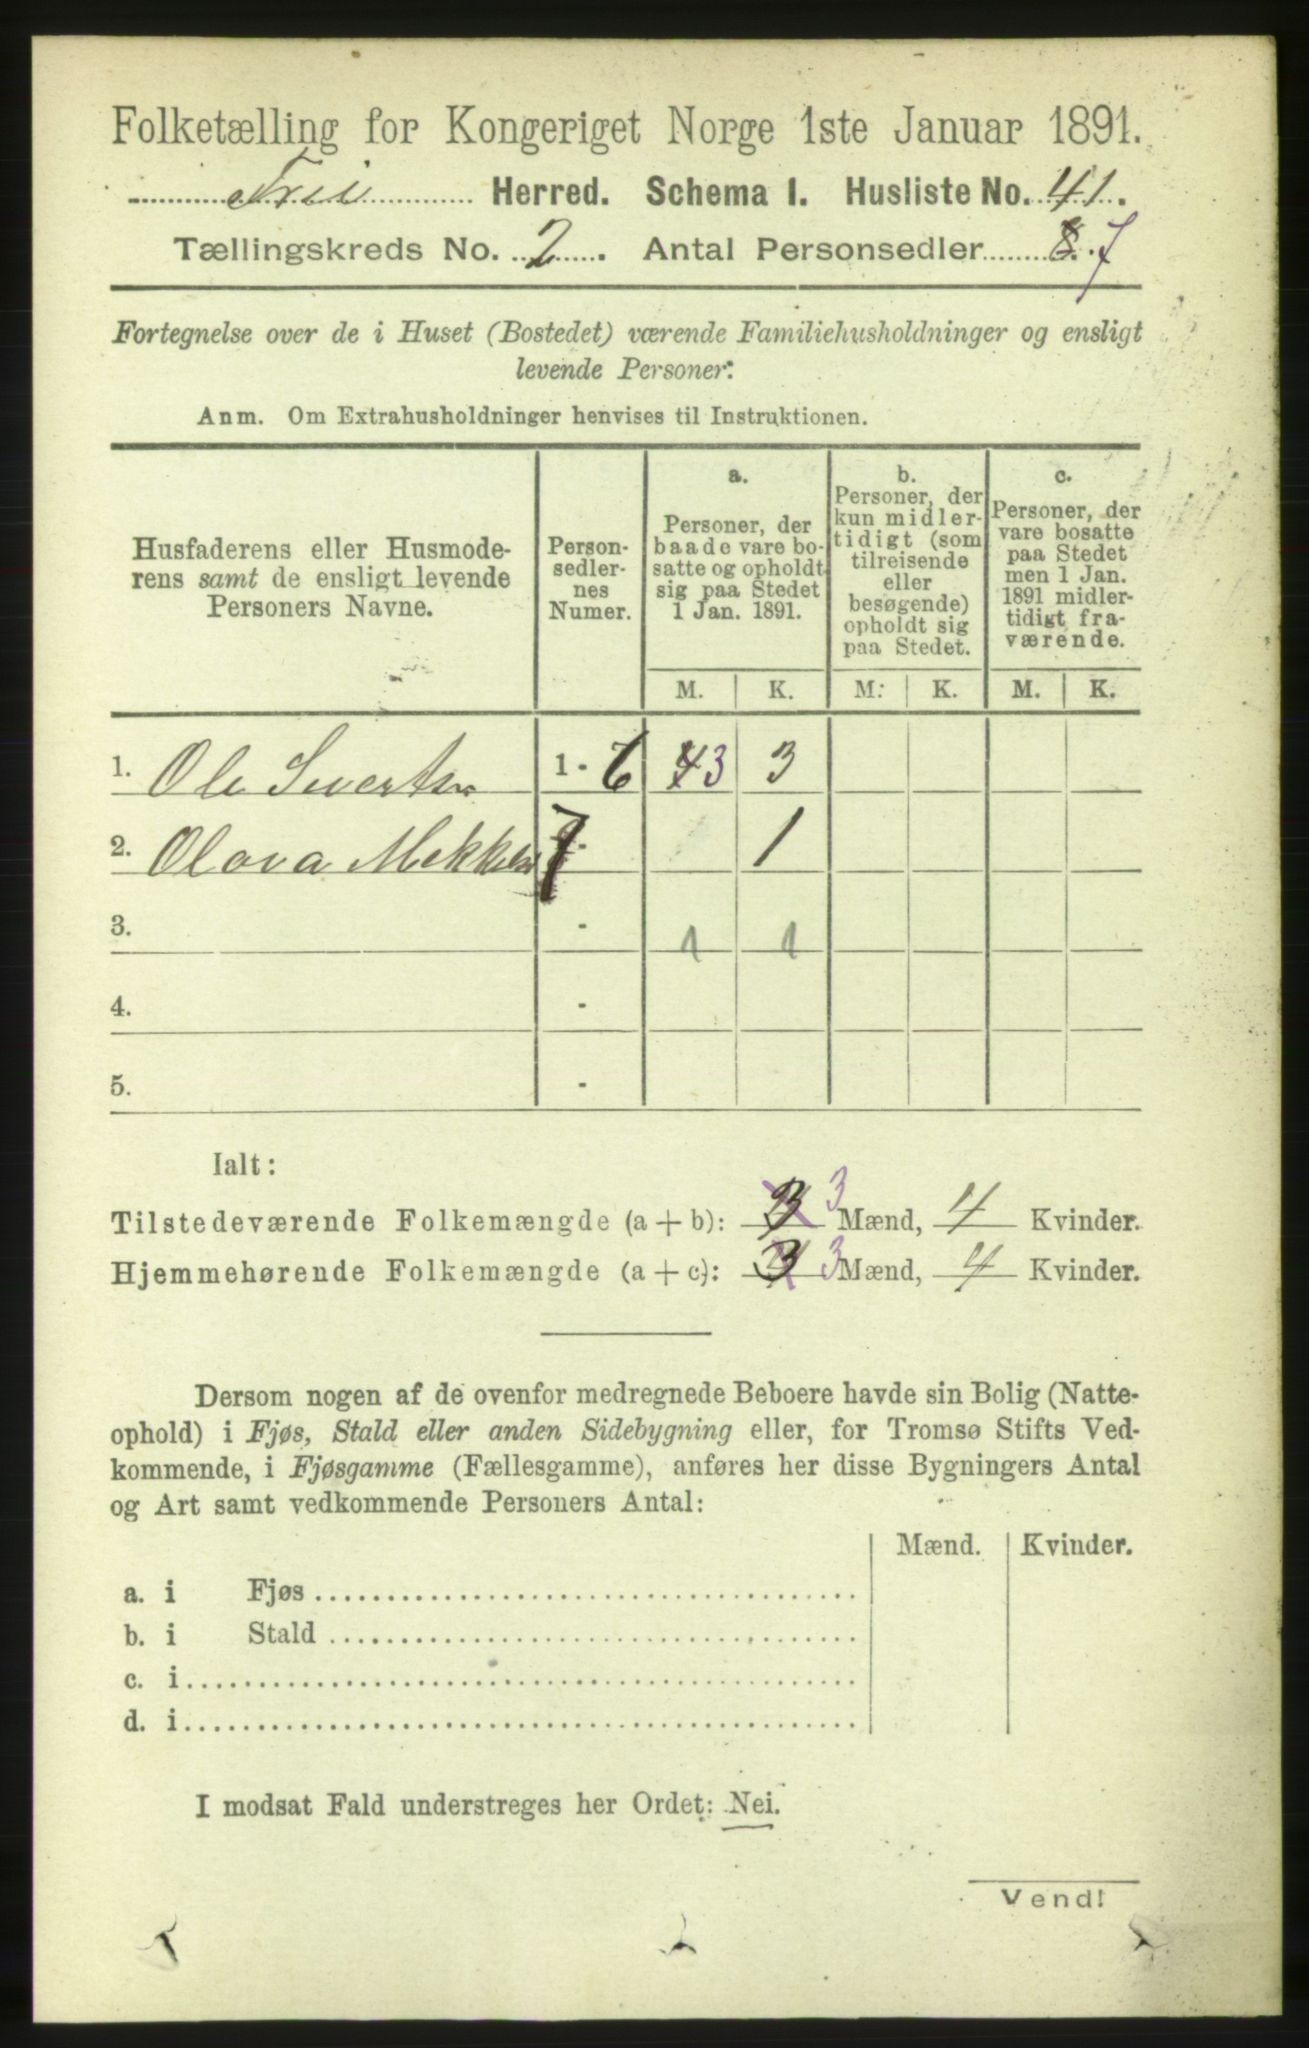 Folketælling for Kongeriget Norge 1ste Januar 1891.
Frei Herred. Schema I. Husliste No. 41.
Tællingskreds No. 2. Antal Personsedler 8. 7
Fortegnelse over de i Huset (Bostedet) værende Familiehusholdninger og ensligt
levende Personer:
Anm. Om Extrahusholdninger henvises til Instruktionen.
Husfaderens eller Husmode-
rens samt de ensligt levende
Personers Navne.
Person-
sedler-
nes
Numer.
a.
Personer, der
baade vare bo-
satte og opholdt
sig paa Stedet
1 Jan. 1891.
b.
Personer, der
kun midler-
tidigt (som
tilreisende
eller
besøgende)
opholdt sig
paa Stedet.
c.
Personer, der
vare bosatte
paa Stedet
men 1 Jan.
1891 midler-
tidigt fra-
værende.
M. K. M. K. M. K.
1. Ole Sivertsen 1 - 6 4 3 3
2. Olava Mekkels 7 - 1
3. - 1 1
4. -
5. -
Ialt:
Tilstedeværende Folkemængde (a + b): 3 3 Mænd, 4 Kvinder.
Hjemmehørende Folkemængde (a + c): 3 3 Mænd, 4 Kvinder.
Dersom nogen af de ovenfor medregnede Beboere havde sin Bolig (Natte-
ophold) i Fjøs, Stald eller anden Sidebygning eller, for Tromsø Stifts Ved-
kommende, i Fjøsgamme (Fællesgamme), anføres her disse Bygningers Antal
og Art samt vedkommende Personers Antal:
Mænd. Kvinder.
a. i Fjøs
b. i Stald
c. i
d. i
I modsat Fald understreges her Ordet: Nei.
Vend!